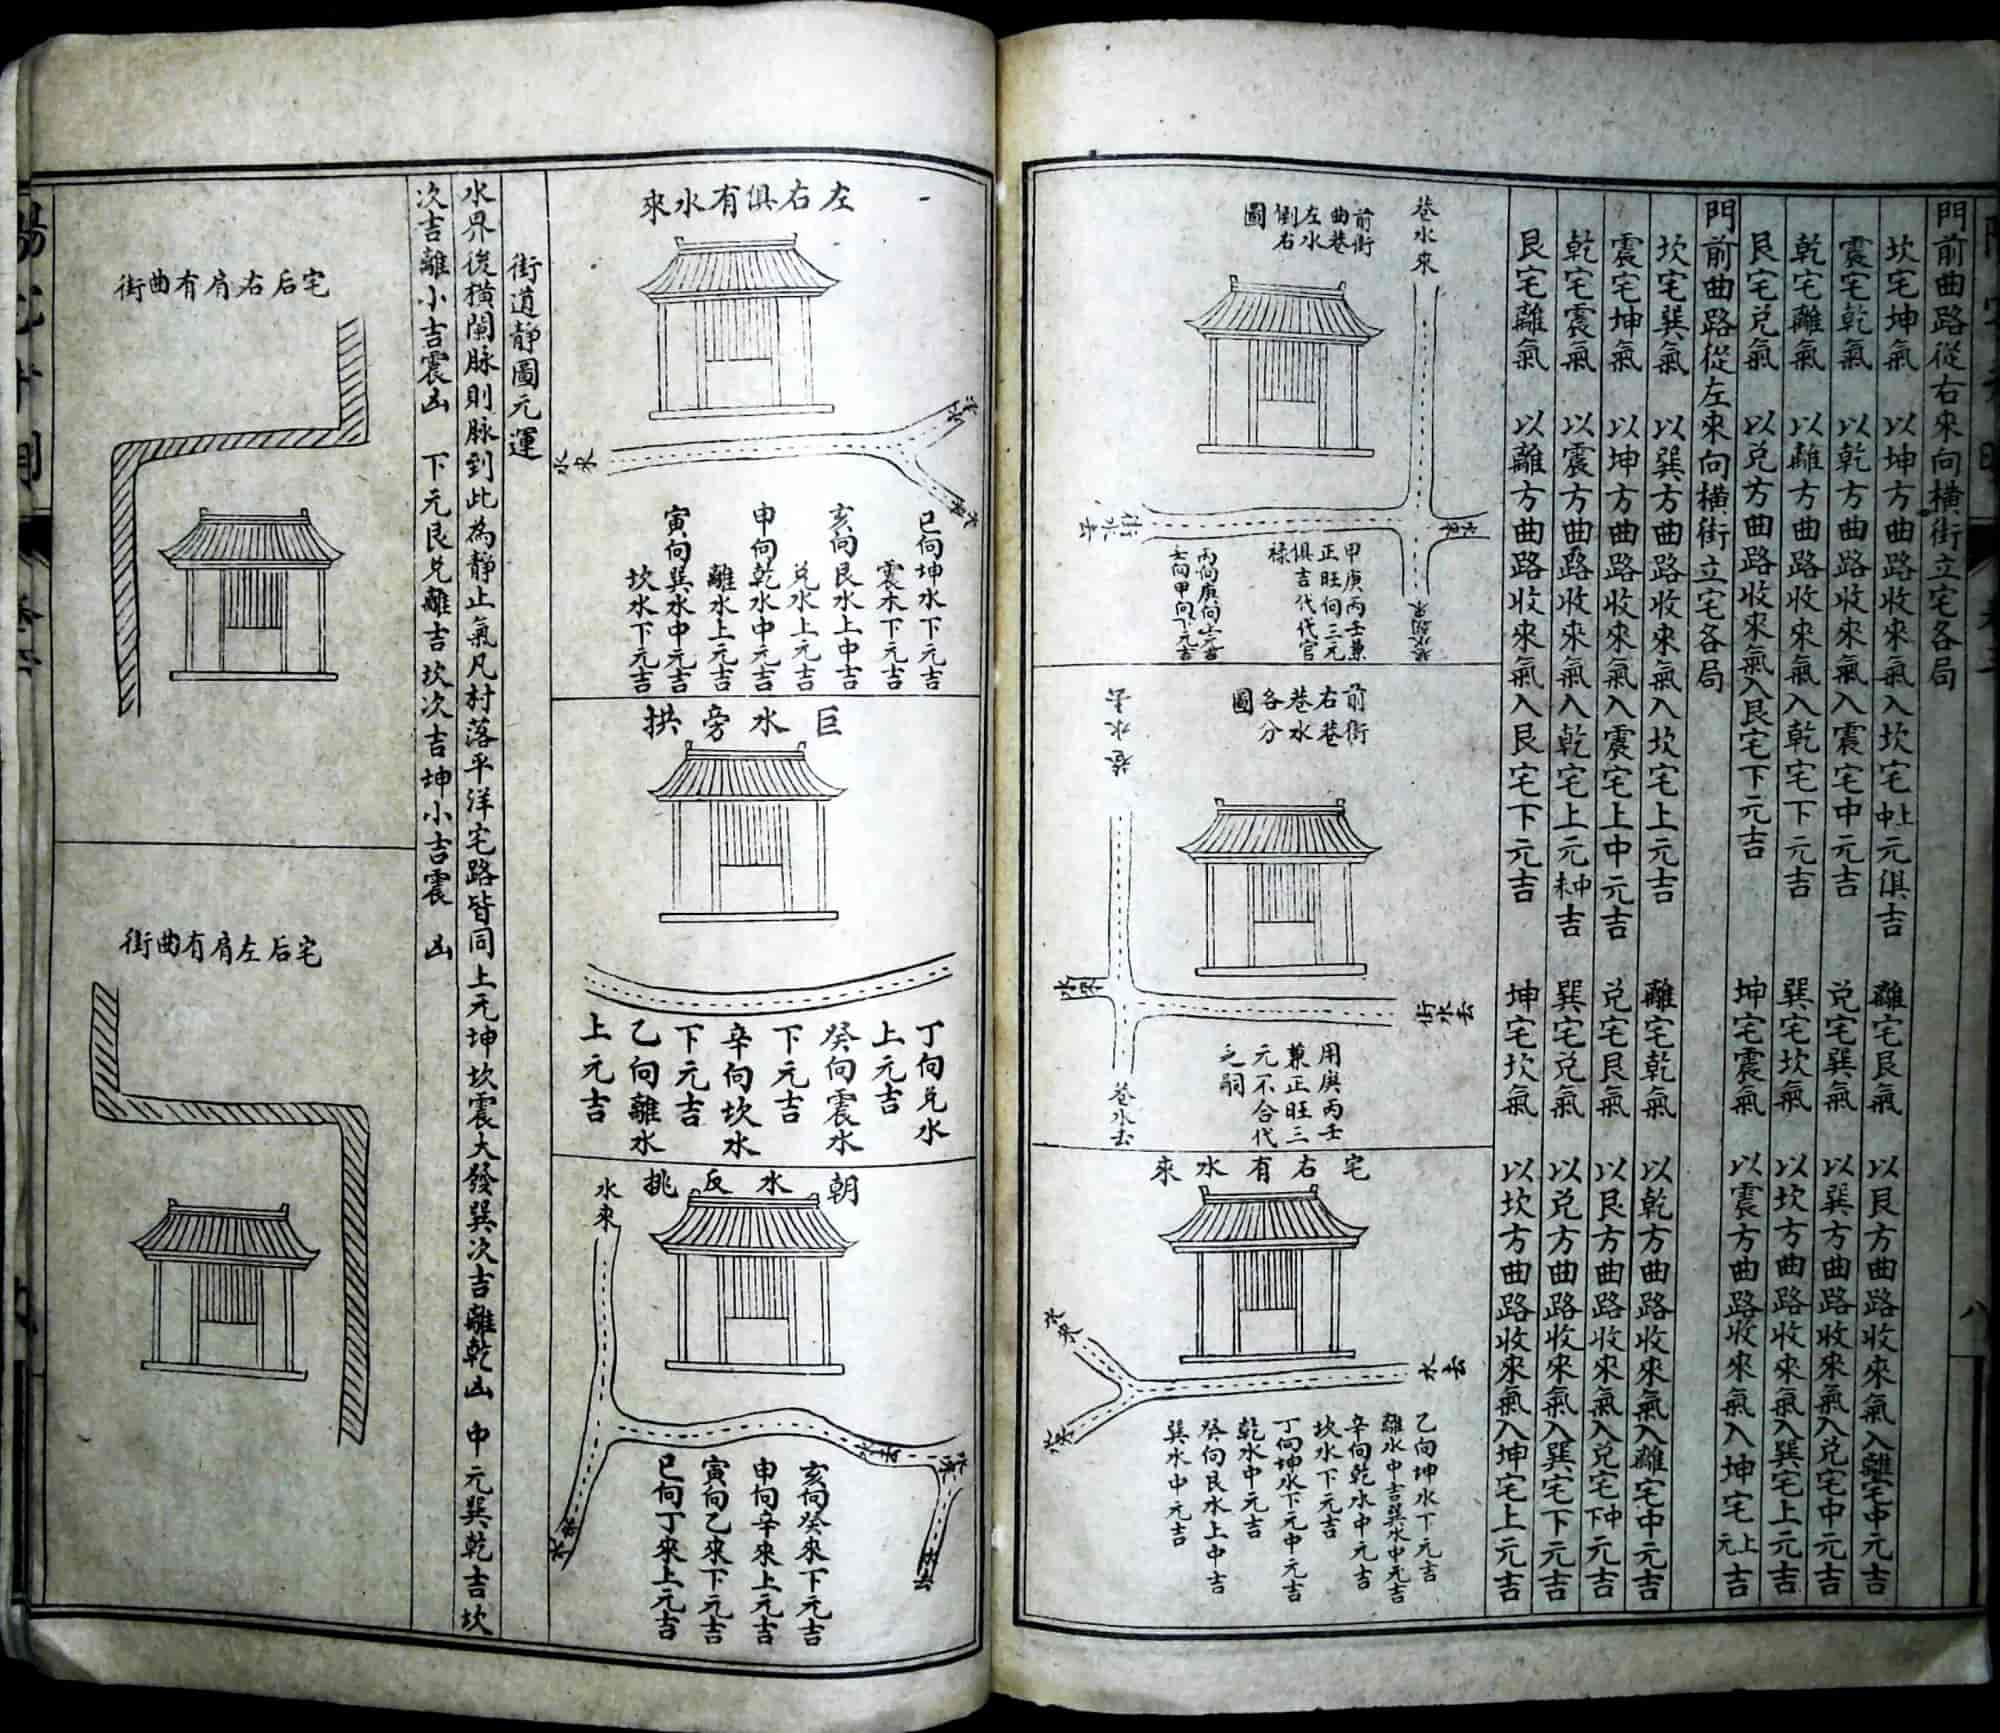 門前曲路從右來向橫街立宅各局
坎宅坤氣　以坤方曲路收來氣入坎宅上中元俱吉　離宅艮氣　以艮方曲路收來氣入離宅中元吉
震宅乾氣　以乾方曲路收來氣入震宅中元吉　兌宅巽氣　以巽方曲路收來氣入兌宅中元吉
乾宅離氣　以離方曲路收來氣入乾宅下元吉　巽宅坎氣　以坎方曲路收來氣入巽宅上元吉
艮宅兌氣　以兌方曲路收來氣入艮宅下元吉　坤宅震氣　以震方曲路收來氣入坤宅上元吉
門前曲路從左來向橫街立宅各局
坎宅巽氣　以巽方曲路收來氣入坎宅上元吉　離宅乾氣　以乾方曲路收來氣入離宅中元吉
震宅坤氣　以坤方曲路收來氣入震宅上中元吉　兌宅艮氣　以艮方曲路收來氣入兌宅中下元吉
乾宅震氣　以震方曲路收來氣入乾宅上元吉　巽宅兌氣　以兌方曲路收來氣入巽宅下元吉
艮宅離氣　以離方曲路收來氣入艮宅下元吉　坤宅坎氣　以坎方曲路收來氣入坤宅上元吉
巷水來
前街
曲巷
左水
倒右
圖
水來
街水去
甲庚丙壬兼
正旺向三元
俱吉代代官
祿
丙向庚向上元吉
壬向甲向下元吉
前街
右巷
巷水
各分
圖
巷水去
水來
街水去
巷水去
用庚丙壬
兼正旺三
元不合代
乏嗣
宅右有水來
水來
水來
水去
乙向坤水下元吉
離水中吉巽水中元吉
辛向乾水中元吉
坎水下元吉
丁向坤水下元中元吉
乾水中元吉
癸向艮水上中吉
巽水中元吉
左右俱有水來
水來
水來
水來
巳向坤水下元吉
震水下元吉
亥向艮水上中吉
兌水上元吉
申向乾水中元吉
離水上元吉
寅向巽水中元吉
坎水下元吉
巨水旁拱
丁向兌水
上元吉
癸向震水
下元吉
辛向坎水
下元吉
乙向離水
上元吉
朝水反挑
水來
水去
水去
水來
水去
亥向癸來下元吉
申向辛來上元吉
寅向乙來下元吉
巳向丁來上元吉
街道靜圖元運
水界後橫闌脉則脉到此為靜止氣凡村落平洋宅路皆同上元坤坎震大發巽次吉離乾凶　中元巽乾吉坎
次吉離小吉震凶　下元艮兌離吉坎次吉坤小吉震凶
宅后右肩有曲街
宅后左肩有曲街
八